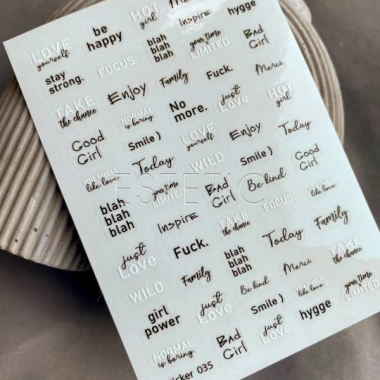 HOT
girl
LOVE
yourself
be
happy
blah
blah
blah
Inspire
hygge
stay
strong.
FOCUS
your time
LIMITED
Bad
Girl
TAKE
the chance
Enjoy
Family
Fuck.
Merci
NORMAL
is boring
No
more.
just
Love
HOT
girl
Good
Girl
Smile )
LOVE
yourself
Enjoy
Today
like love
Today
WILD
Smile )
blah
blah
blah
your time
LIMITED
Bad
Girl
Be kind
Good
Girl
ESTETIC
Inspire
TAKE
the chance
FOCUS
like love
just
Love
Fuck.
blah
blah
blah
Today
Family
WILD
Family
Be kind
Merci
TAKE
the chance
girl
power
just
Love
Smile )
like love
your time
LIMITED
NORMAL
is boring
Bad
Girl
just
Love
hygge
icker 035